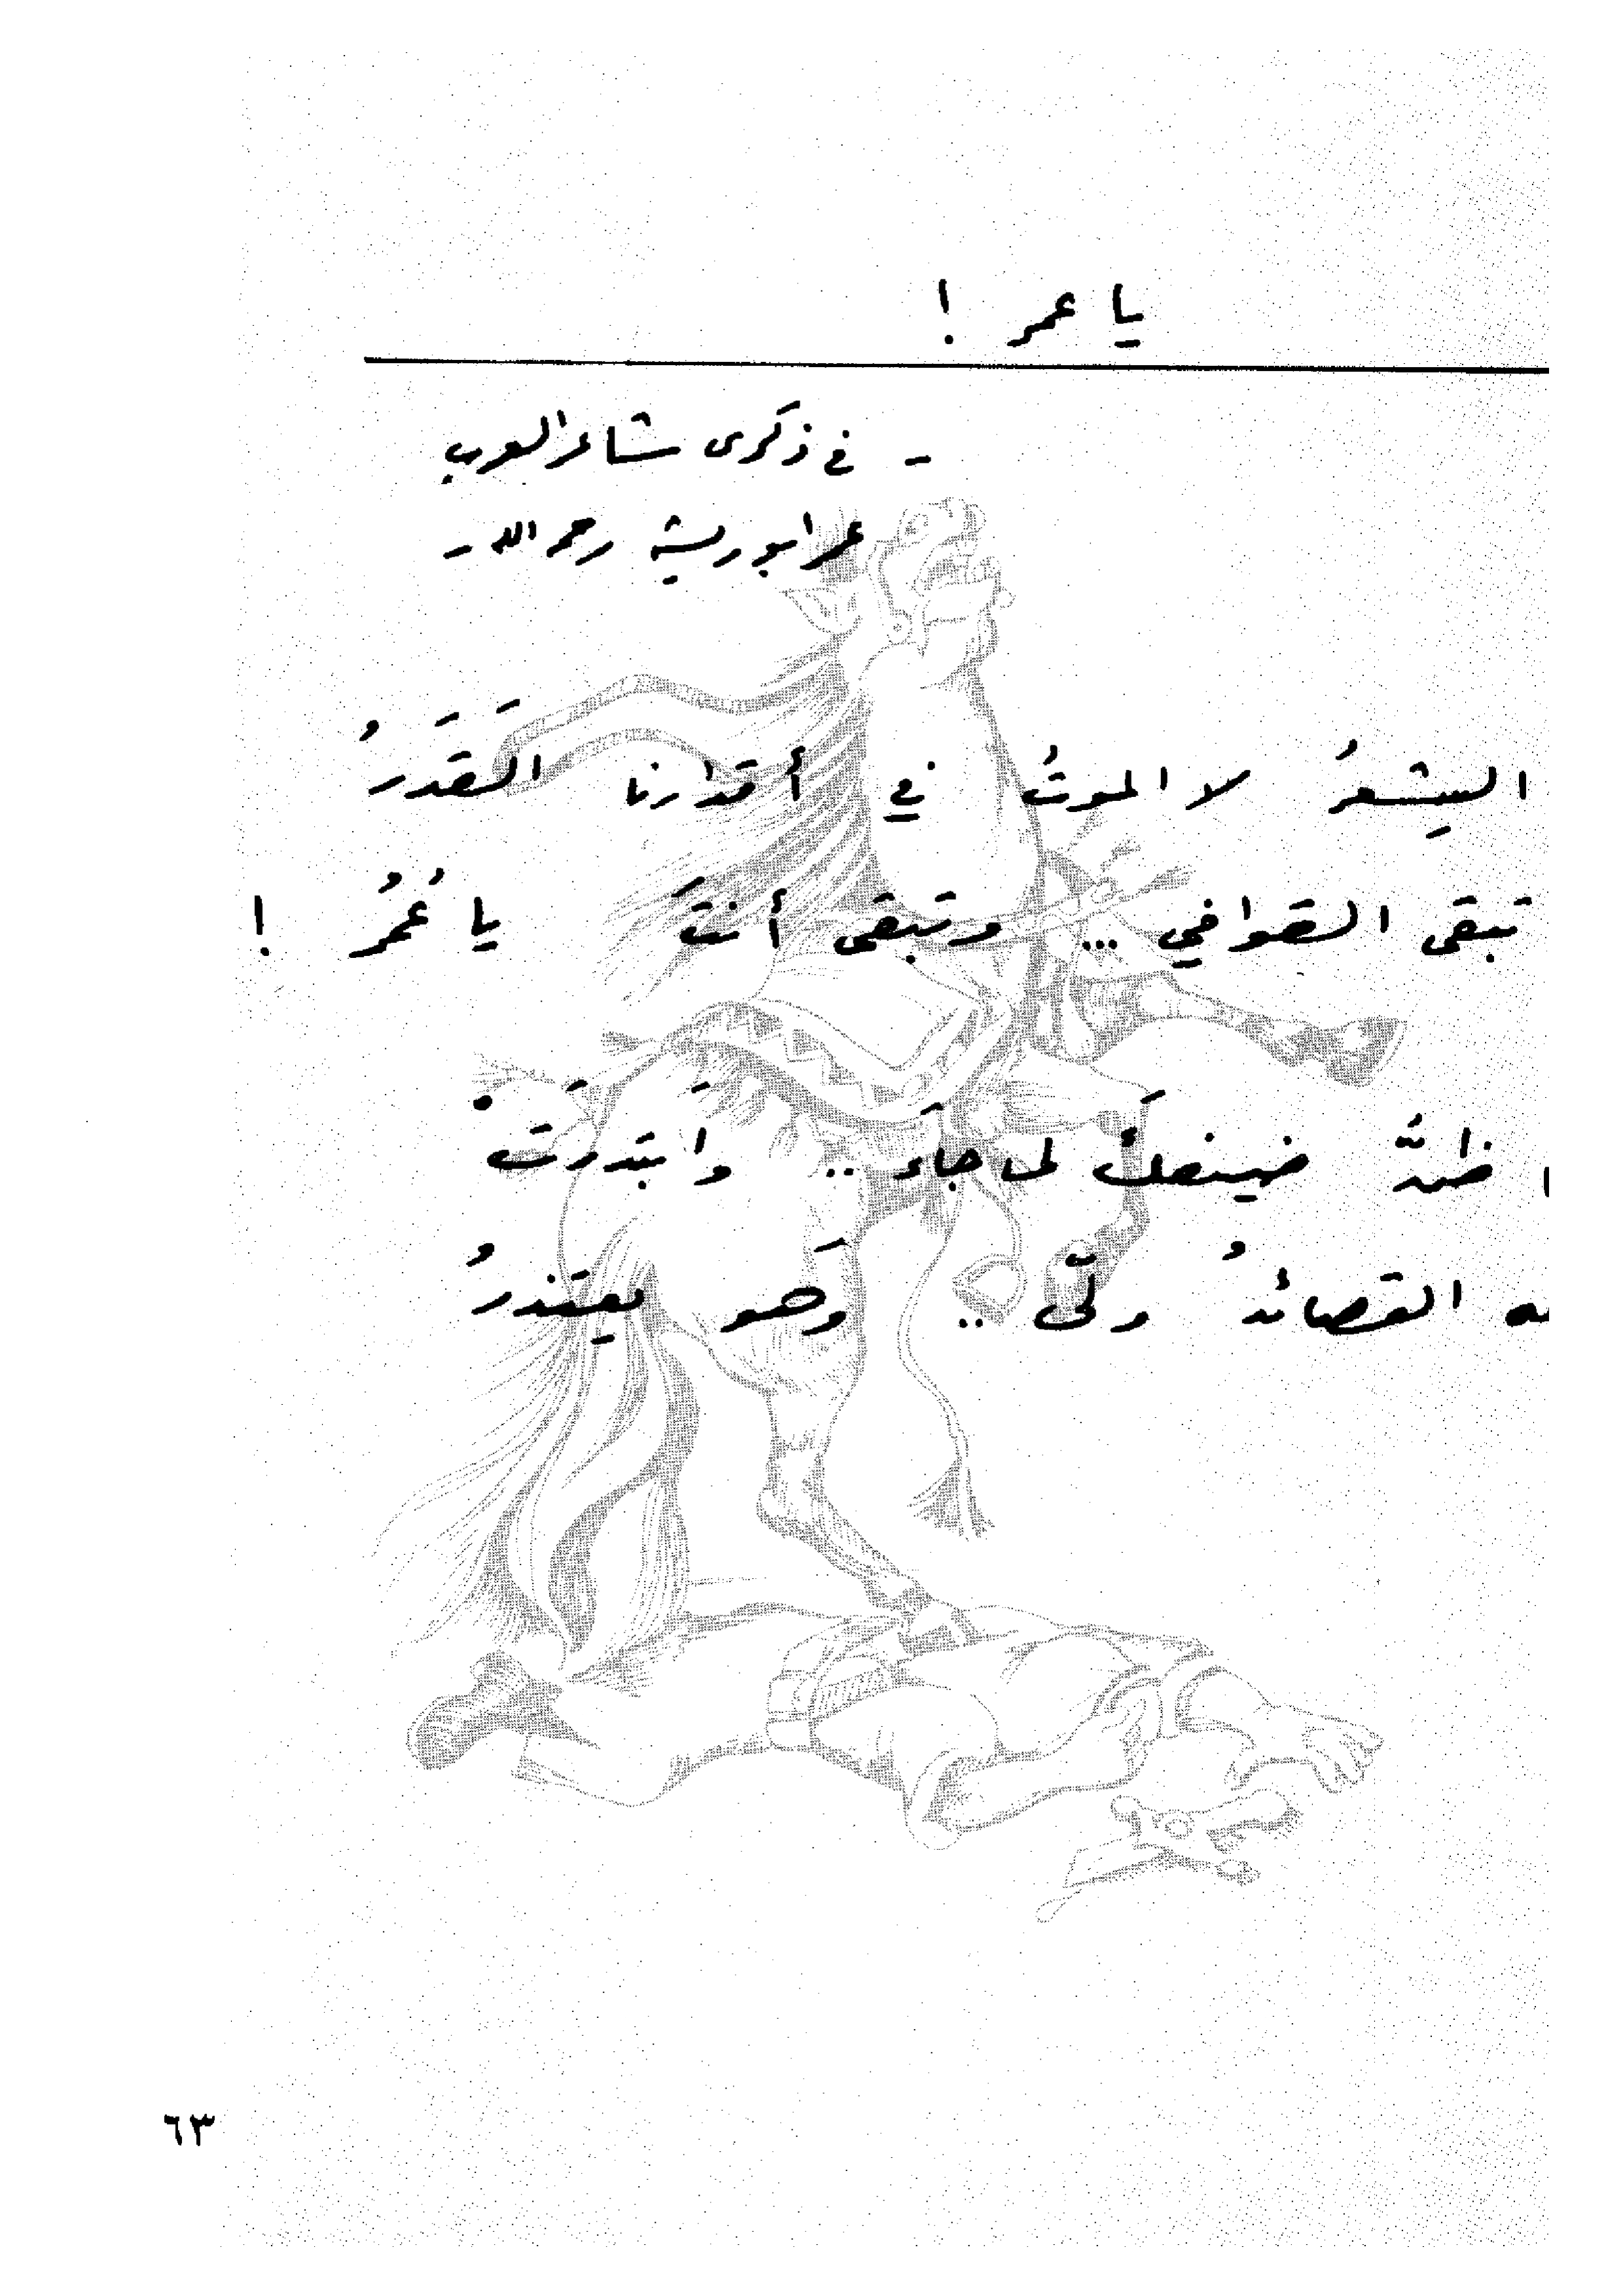 يا عمر !
- في ذكرى شاعر العرب
عمر ابو ريشة رحمه الله -
الشِّعرُ لا الموتُ في أقدارنا القَدَرُ
تبقى القوافي ... وتبقى أنتَ يا عُمَرُ !
ظنَّ ضيفكَ لما جاءَ .. وَابتَدَرَتْ
القصائدُ ولّى .. وَهو يعتذرُ
٦٣